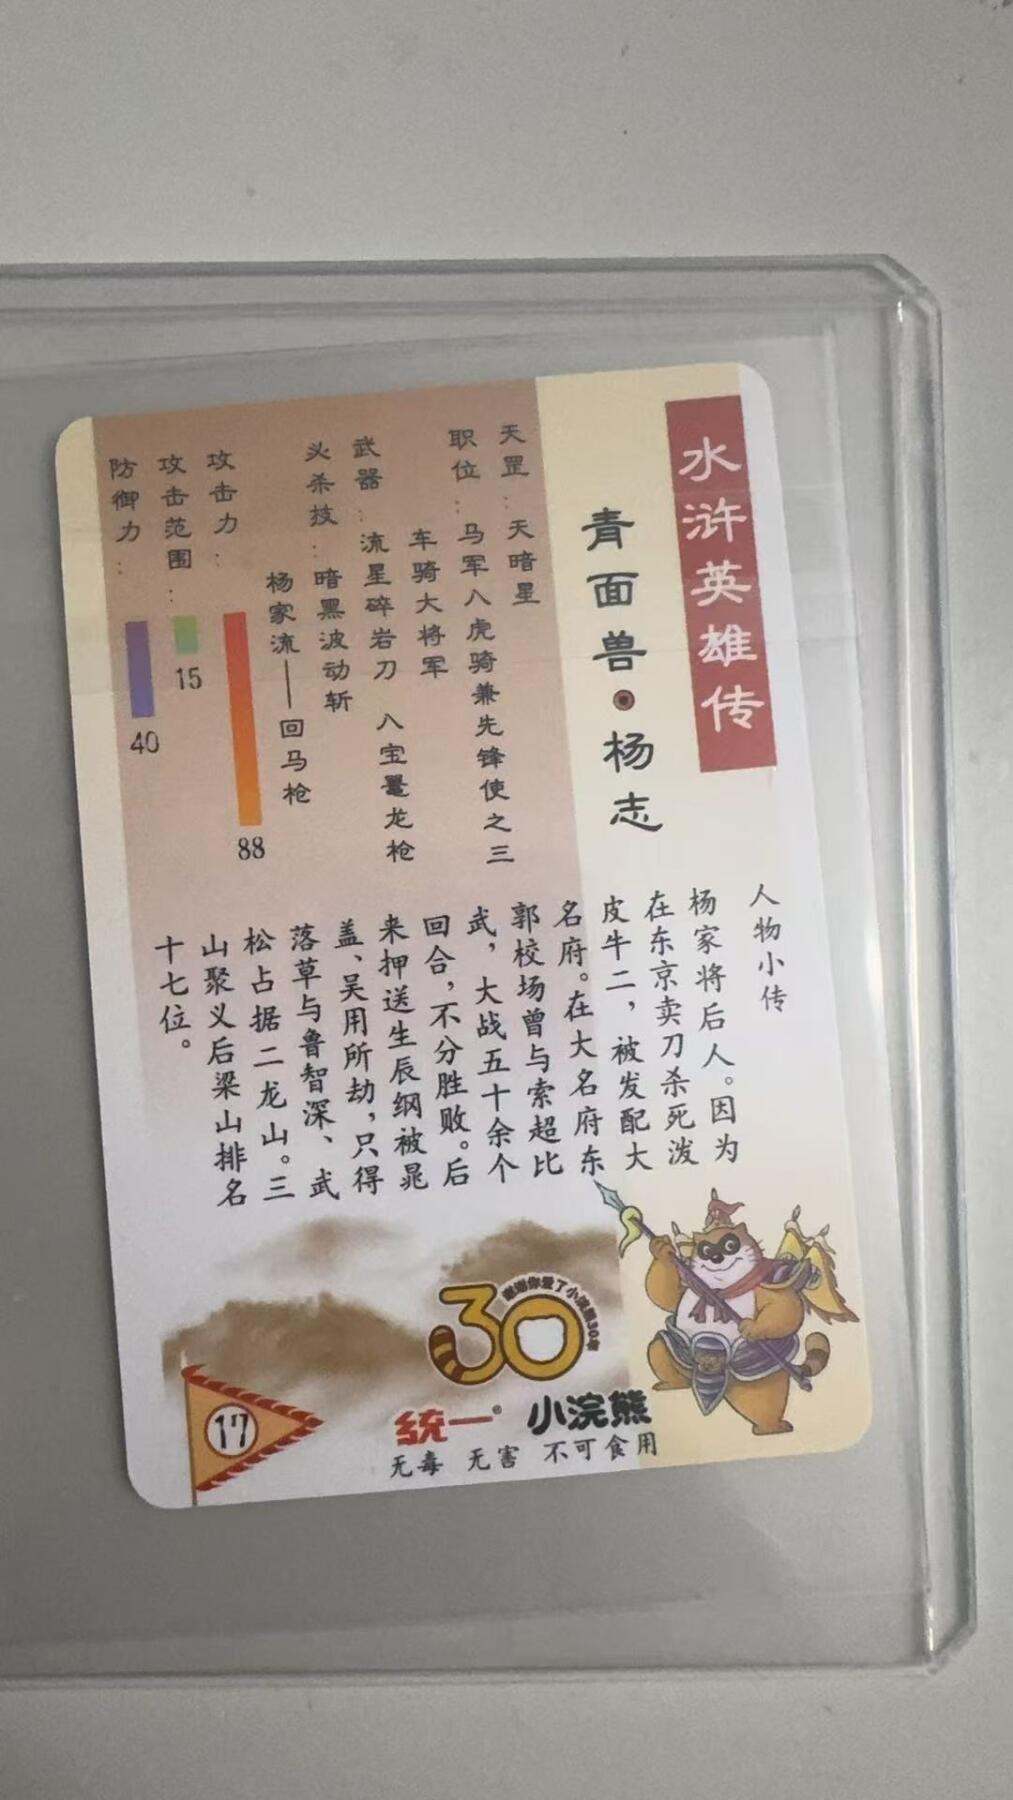 水浒英雄传
青面兽·杨志
天罡：天暗星
职位：马军八虎骑兼先锋使之三
车骑大将军
武器：流星碎岩刀 八宝鼍龙枪
必杀技：暗黑波动斩
杨家流——回马枪
攻击力：
88
攻击范围：
15
防御力：
40
人物小传
杨家将后人。因为
在东京卖刀杀死泼
皮牛二，被发配大
名府。在大名府东
郭校场曾与索超比
武，大战五十余个
回合，不分胜败。后
来押送生辰纲被晁
盖、吴用所劫，只得
落草与鲁智深、武
松占据二龙山。三
山聚义后梁山排名
十七位。
谢谢你爱了小浣熊30年
30
统一® 小浣熊
无毒 无害 不可食用
17